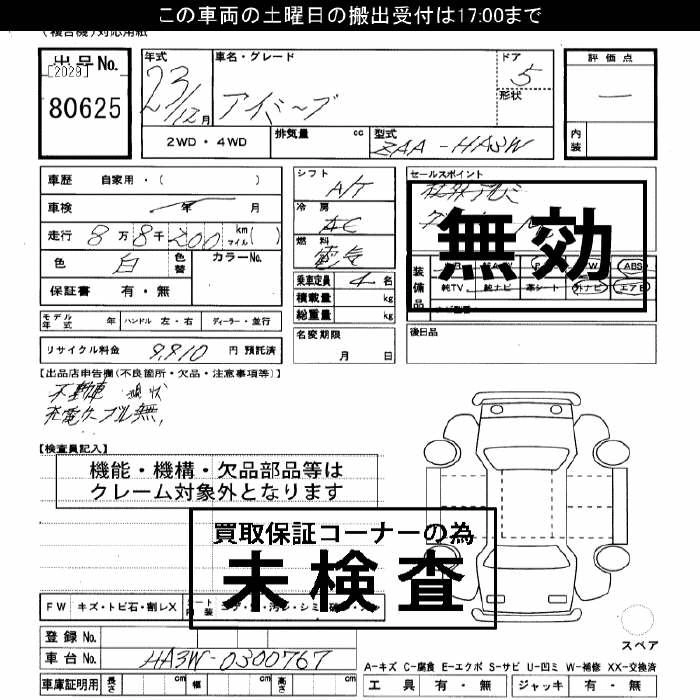 この車両の土曜日の搬出受付は17:00まで
(複合機)対応用紙
出品No.
[2029]
80625
年式
23/12月
車名・グレード
アイミーブ
ドア
5
形状
評価点
—
内装
2WD・4WD
排気量 cc
型式
ZAA-HA3W
車歴 自家用・( )
車検 年 月
走行 8万8千200 km マイル( )
色 白 色替 カラーNo.
保証書 有・無
モデル年式 年 ハンドル 左・右 ディーラー・並行
リサイクル料金 9,910 円 預託済
シフト
A/T
冷房
AC
燃料
電気
乗車定員 4 名
積載量 kg
総重量 kg
名変期限
月 日
セールスポイント
社外アルミ
無効
装備品
ABS
純TV 純ナビ 革シート 外ナビ エアB
後日品
【出品店申告欄(不良箇所・欠品・注意事項等)】
不動車 現状
充電ケーブル無
【検査員記入】
機能・機構・欠品部品等は
クレーム対象外となります
買取保証コーナーの為
未検査
FW キズ・トビ石・割レX シート内装
登録No.
車台No. HA3W-0300767
車庫証明用 長さ cm 幅 cm 高さ cm
スペア
A-キズ C-腐食 E-エクボ S-サビ U-凹ミ W-補修 XX-交換済
工具 有・無 ジャッキ 有・無